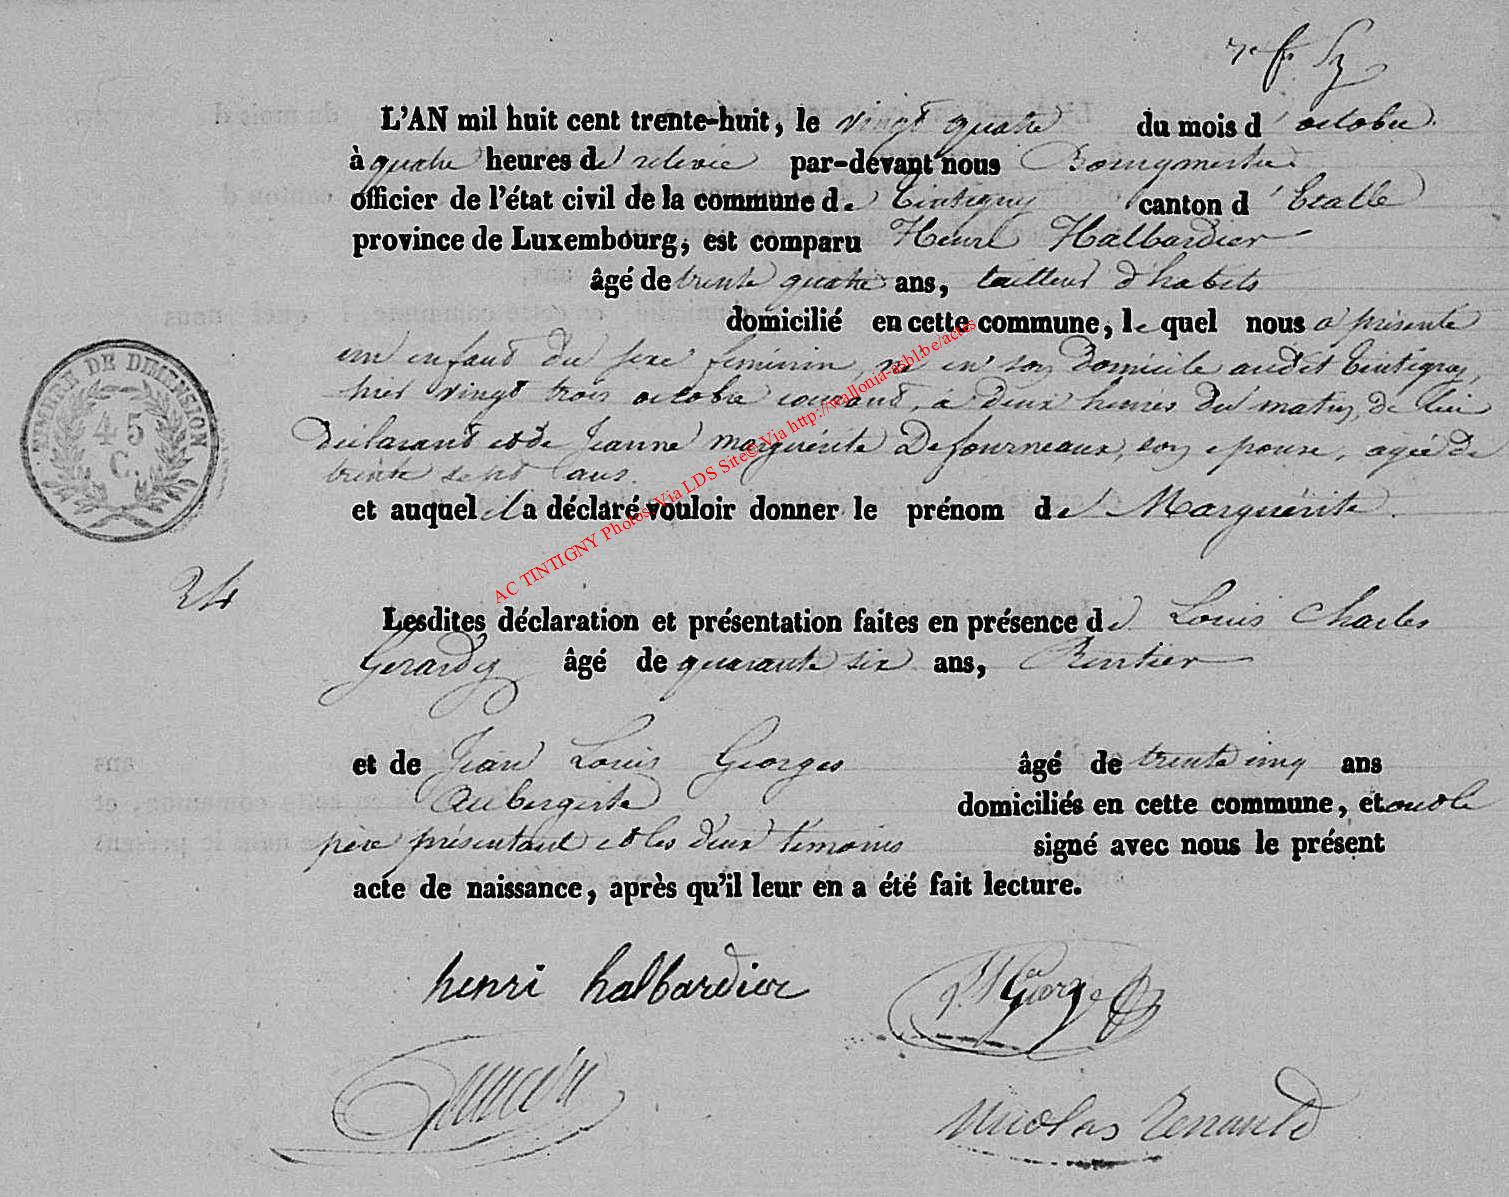 7e f.
L'AN mil huit cent trente-huit, le vingt quatre du mois d'octobre
à quatre heures de relevée par-devant nous Bourgmestre
officier de l'état civil de la commune de Tintigny canton d'Etalle
province de Luxembourg, est comparu Henri Halbardier
âgé de trente quatre ans, tailleur d'habits
domicilié en cette commune, le quel nous a présenté
un enfant du sexe féminin, né en son domicile audit Tintigny,
hier vingt trois octobre courant, à deux heures du matin, de lui
déclarant et de Jeanne Marguérite Defourneaux, son épouse, agée de
trente sept ans.
et auquel il a déclaré vouloir donner le prénom de Marguérite.
TIMBRE DE DIMENSION
45
C.
24
Lesdites déclaration et présentation faites en présence de Louis Charles
Gerardy âgé de quarante six ans, Rentier
et de Jean Louis Georges âgé de trente cinq ans
Aubergiste domiciliés en cette commune, et ont le
père présentant et les deux témoins signé avec nous le présent
acte de naissance, après qu'il leur en a été fait lecture.
henri halbardier
George
Nicolas Renauld
AC TINTIGNY Photos Via LDS Site© Via http://wallonia-asbl.be/actes